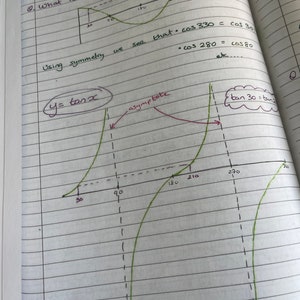 Q. What is
Using symmetry we see that • cos 330 = cos 30
• cos 280 = cos 80
etc
y = tan x
asymptote
tan 30 =
30 90 180 210 270